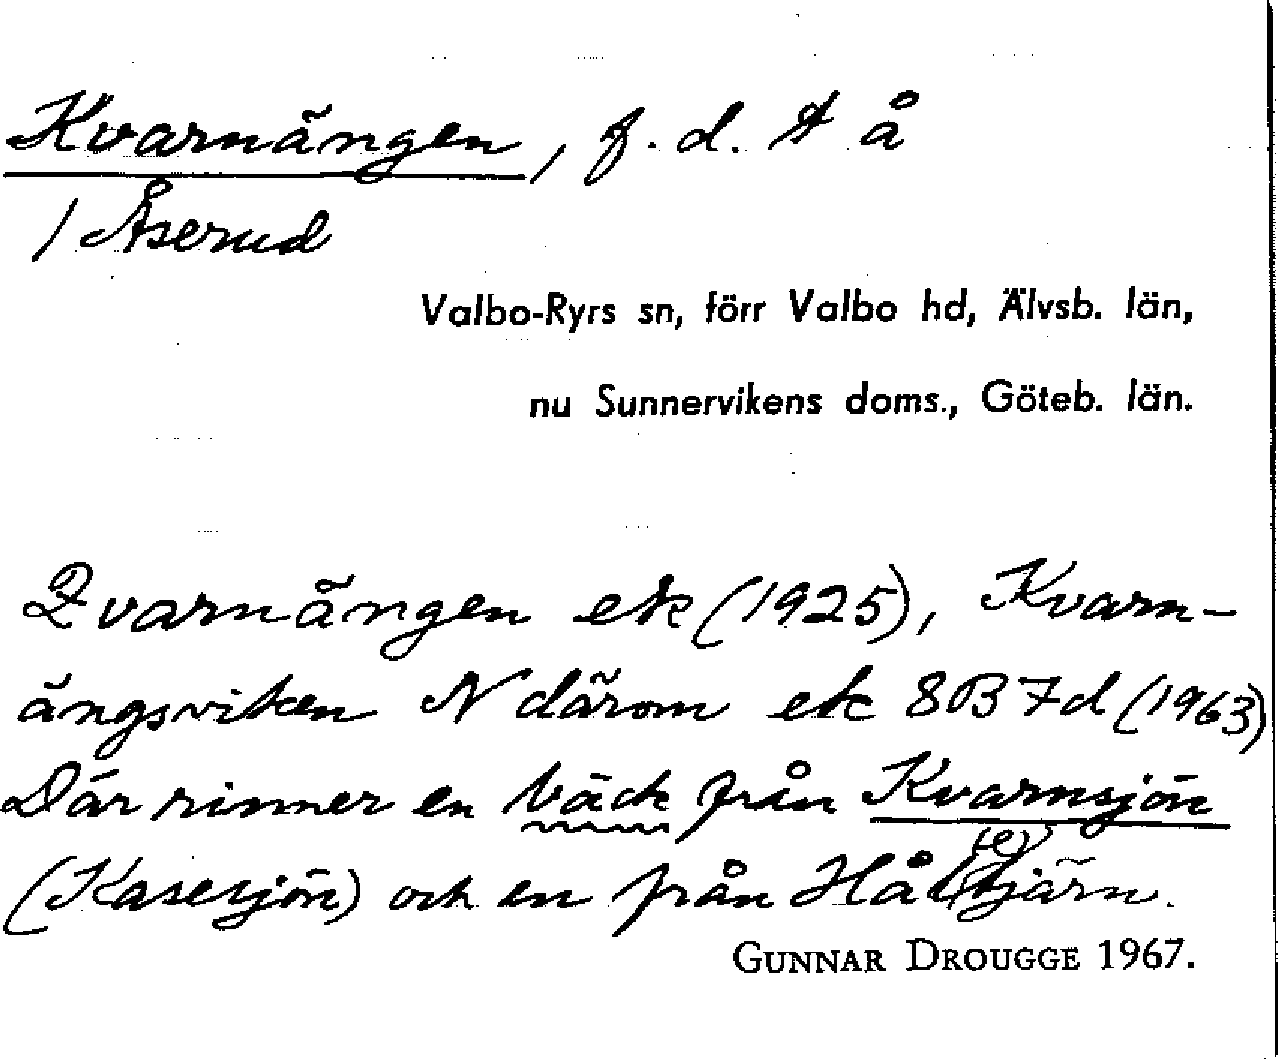 Kvarnängen, f. d. t å
/ Åserud
Valbo-Ryrs sn, förr Valbo hd, Älvsb. län,
nu Sunnervikens doms., Göteb. län.
Qvarnängen ek (1925), Kvarn-
ängsviken N därom ek 8B7d (1963)
Där rinner en bäck från Kvarnsjön
(Kasesjön) och en från Hål(e)tjärn.
GUNNAR DROUGGE 1967.